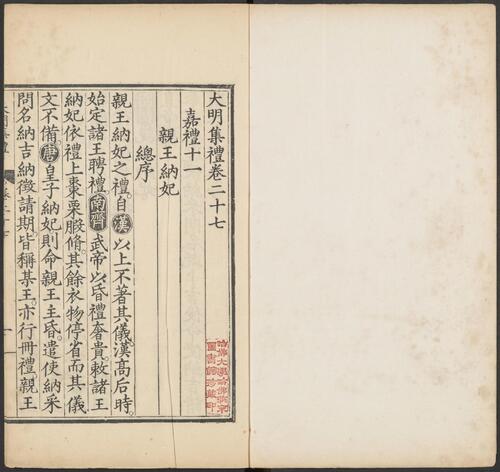 大明集禮卷二十七
嘉禮十一
親王納妃
總序
親王納妃之禮自漢以上不著其儀漢高后時
始定諸王聘禮南齊武帝以昏禮奢貴敕諸王
納妃依禮上棗栗腶脩其餘衣物停省而其儀
文不備唐皇子納妃則命親王主昏遣使納采
問名納吉納徵請期皆稱某王亦行冊禮親王